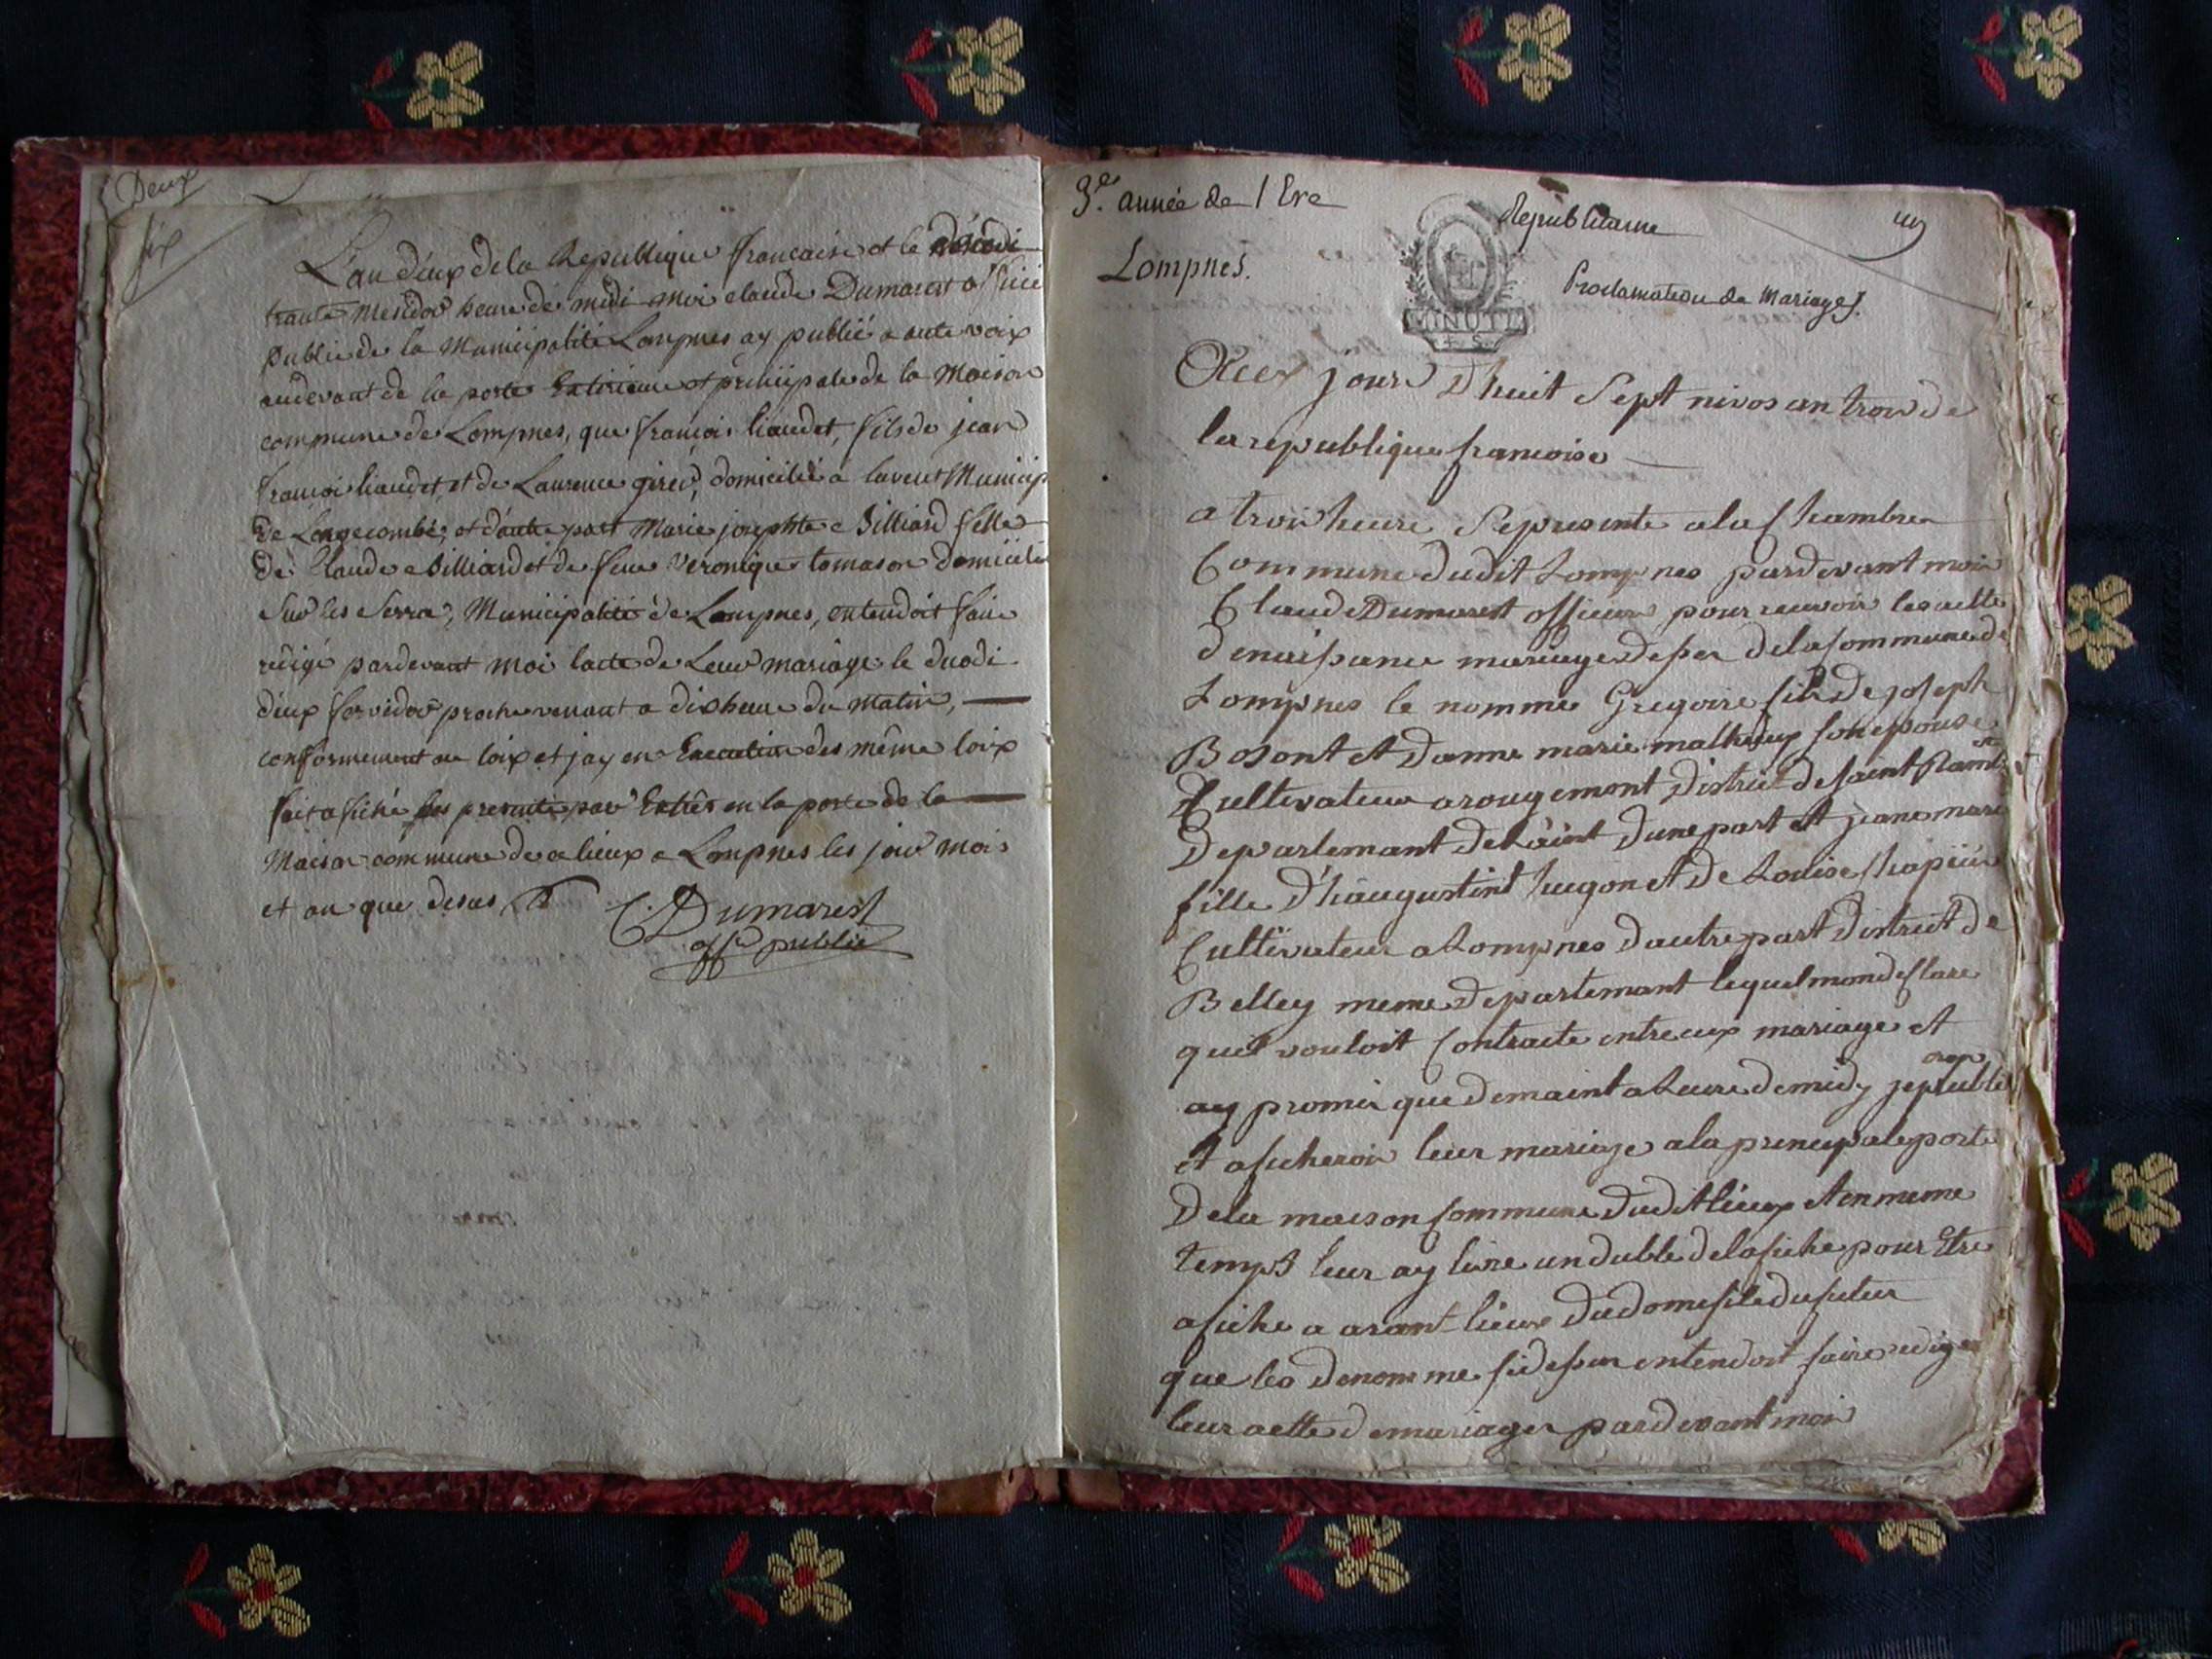 Deux
six
L'an deux de la Republique francaise et le decadi
trante Mesidor heure de midi moi claude Dumarest offici
public de la Municipalité Lompnes ay publié a aute voix
audevant de la porte Exterieure et principale de la Maison
commune de Lompnes, que francois liaudet, fils de jean
francoi liaudet et de Laurence girod, domicilié a lavent Municip
de Longecombe, et d'autre part Marie josephte Billiard fille
de Claude Billiard et de feue Veronique tomason domicilié
Sur les Serra, Municipalité de Lompnes, entendoit faire
redigé pardevant moi lacte de Leur mariage le duodi
deux fervidor prochevenant a dix heure du matin,
conformement au loix et jay en Execution des même loix
fait afiché les presente par Extrêt en la porte de la
Maison commune de ce lieux a Lompnes les jour mois
et an que desus
C. Dumarest
offr public
3.e année de l Ere Republicaine
Lompnes.
MINUTE
Proclamation de Mariages.
jourd huit Sept nivos an trois de
la republique francoise
a trois heure Sepresente a la Chambre
Commune dudit Lompnes pardevant moi
Claude Dumarest officier pour recevoir les actte
denaissance mariage deses dela Commune de
Lompnes le nomme Gregoire fils de joseph
Bosont et danne marie mathieux son epouse
Cultivateur a rougemont district de saint Ramb
Departemant delaint dune part et jeane marie
fille d'haugustint hugon et de Louise Chapuis
Cultivateur a Lompnes dautre part district de
Belley meme departemant lequel mon desclare
quil vouloit Contracte entre eux mariage et
ay promis que demaint a Leure demidy je publi
et aficherois leur mariage a la principale porte
de la maison Commune dudit lieux et en meme
temps leur ay livre un duble de lafiche pour Etre
afiche a arant lieux du domesile du futur
que les denomme sidesus entendoit faire rediger
leur actte de mariage pardevant moi